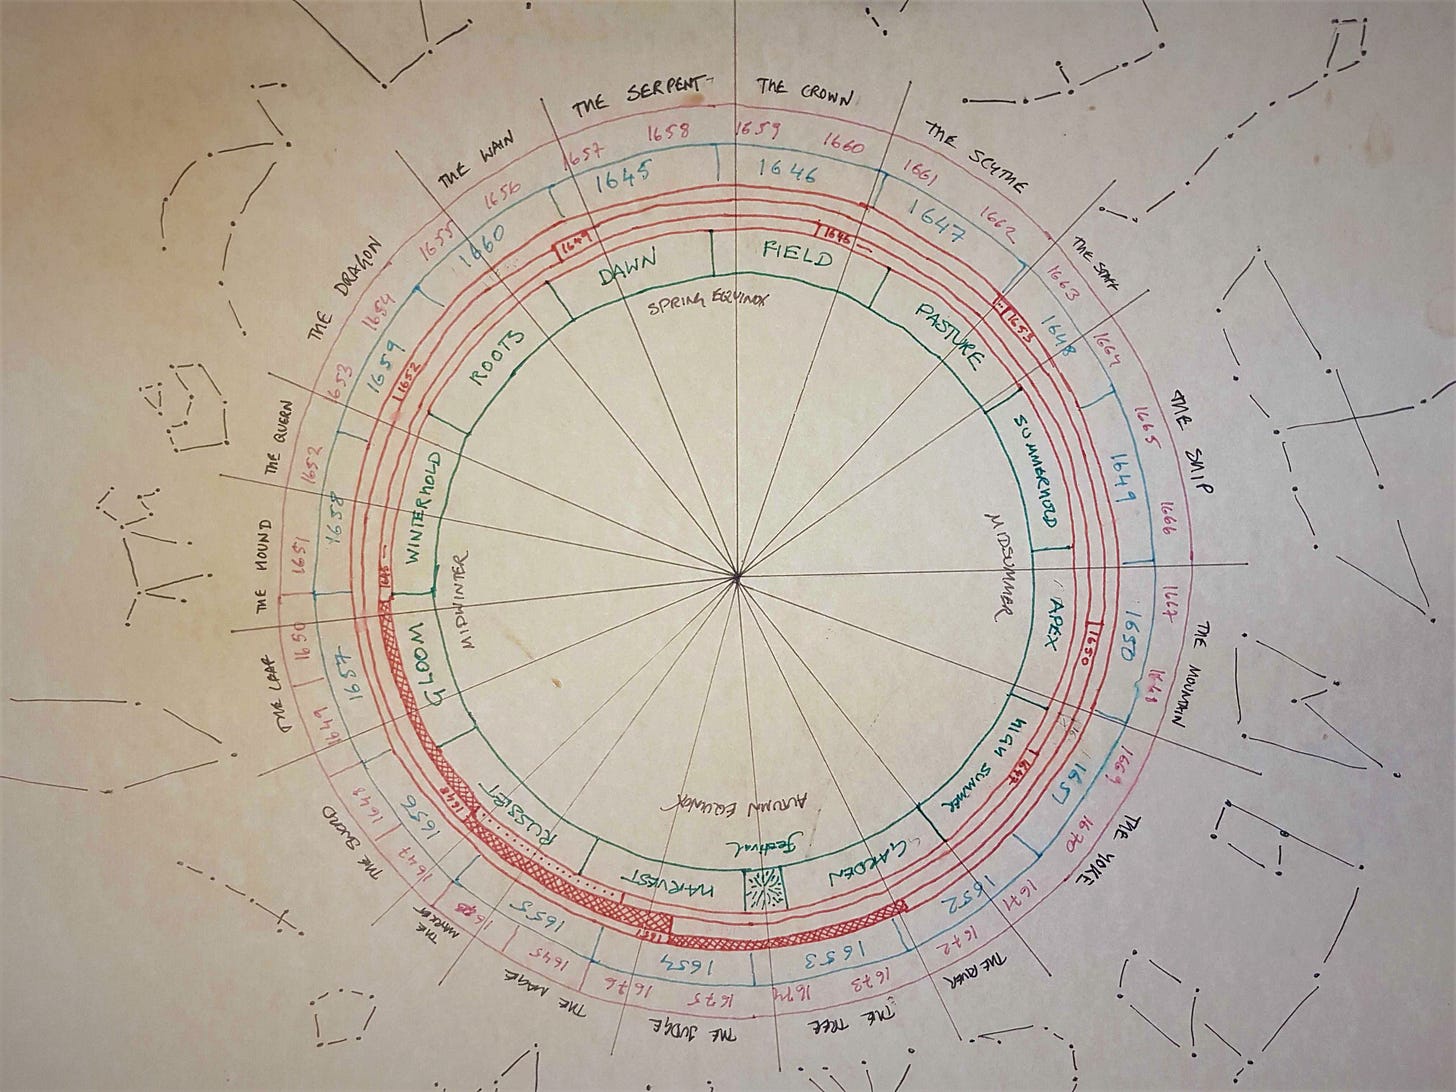 THE SERPENT
THE CROWN
THE SCYTHE
THE STAFF
THE SHIP
THE MOUNTAIN
THE YOKE
THE RIVER
THE TREE
THE JUDGE
THE MAGE
THE MARKET
THE SWORD
THE LEAF
THE HOUND
THE QUERN
THE DRAGON
THE WAIN
1659
1660
1661
1662
1663
1664
1665
1666
1667
1668
1669
1670
1671
1672
1673
1674
1675
1676
1645
1646
1647
1648
1649
1650
1651
1652
1653
1654
1655
1656
1657
1658
1645
1646
1647
1648
1649
1650
1651
1652
1653
1654
1655
1656
1657
1658
1659
1660
1649
1646
1653
1650
1647
1651
1648
1645
1652
DAWN
FIELD
PASTURE
SUMMERHOLD
APEX
HIGH SUMMER
GARDEN
Festival
HARVEST
RUSSET
GLOOM
WINTERHOLD
ROOTS
SPRING EQUINOX
MIDSUMMER
AUTUMN EQUINOX
MIDWINTER